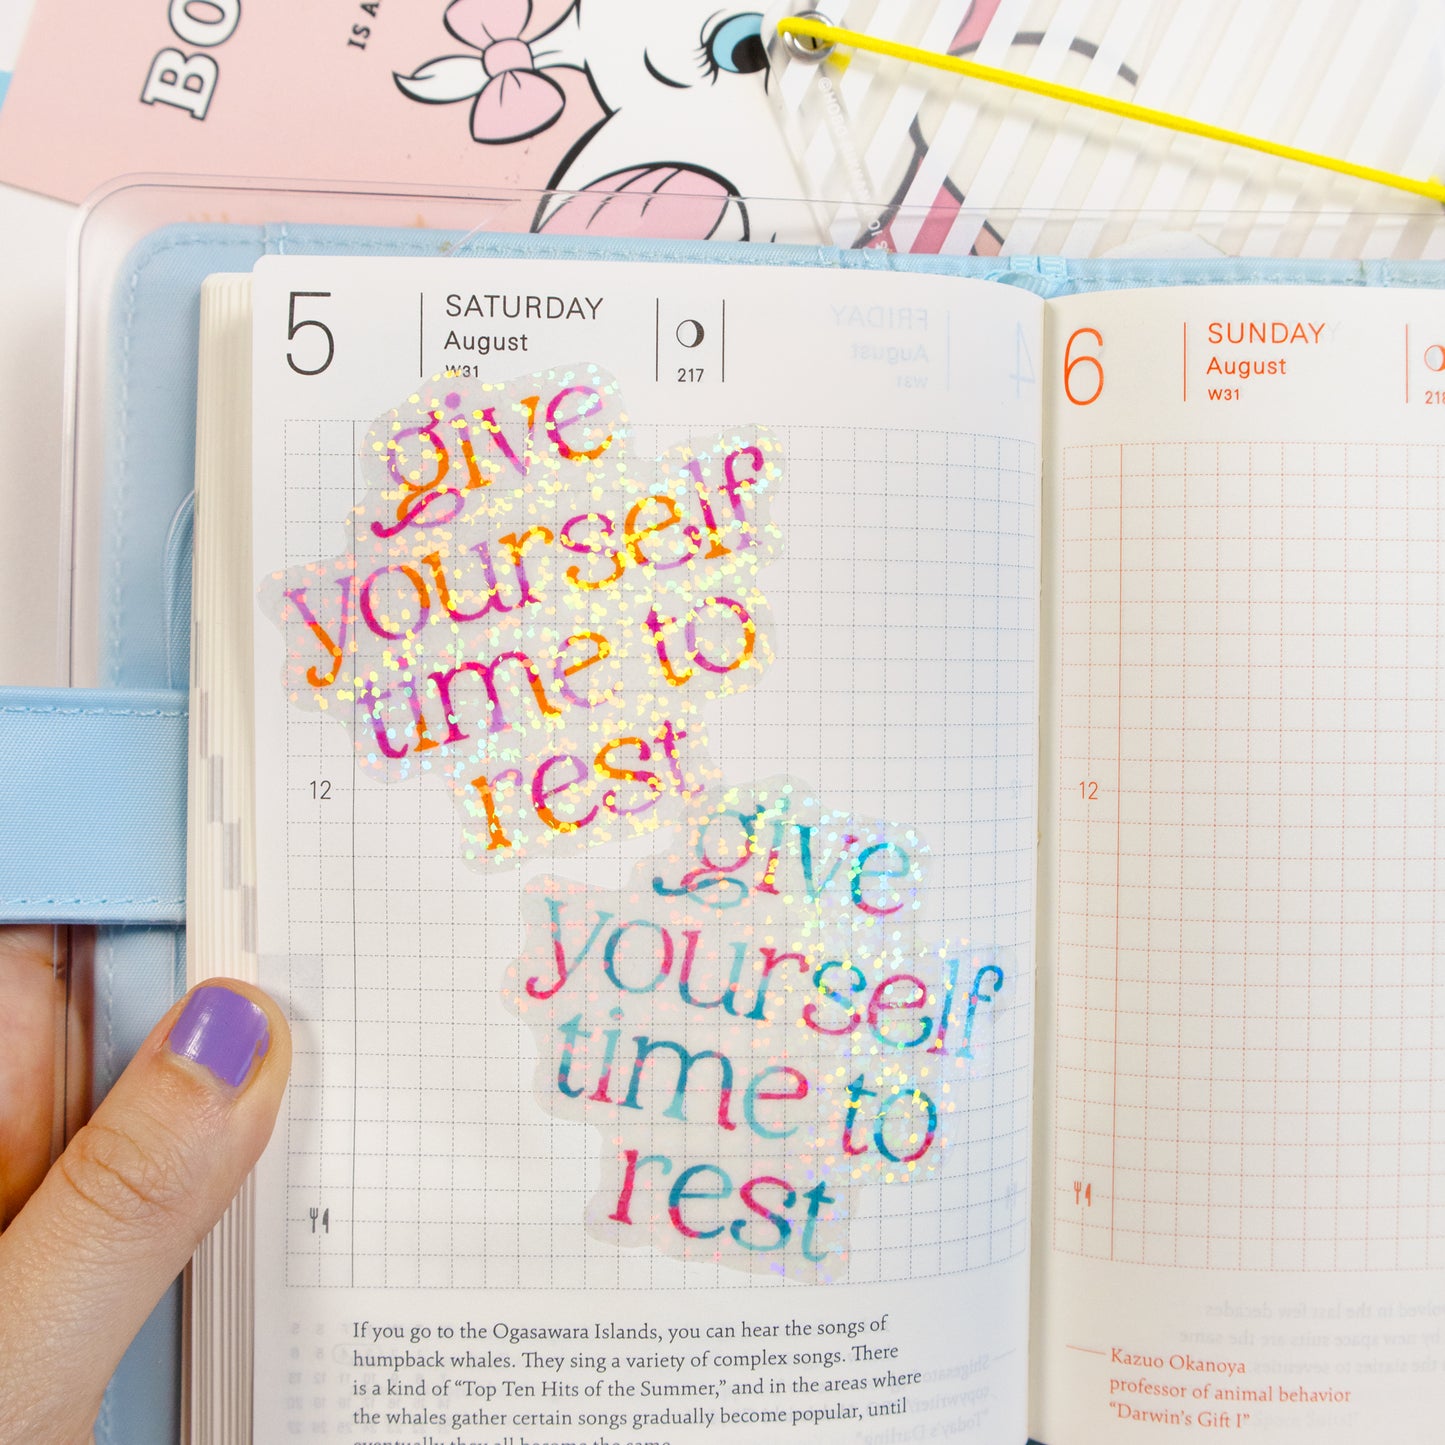 BO
IS A
5
SATURDAY
August
W31
217
give
yourself
time to
rest
12
give
yourself
time to
rest
If you go to the Ogasawara Islands, you can hear the songs of
humpback whales. They sing a variety of complex songs. There
is a kind of “Top Ten Hits of the Summer,” and in the areas where
the whales gather certain songs gradually become popular, until
eventually they all become the same.
6
SUNDAY
August
W31
218
12
Kazuo Okanoya
professor of animal behavior
“Darwin's Gift I”